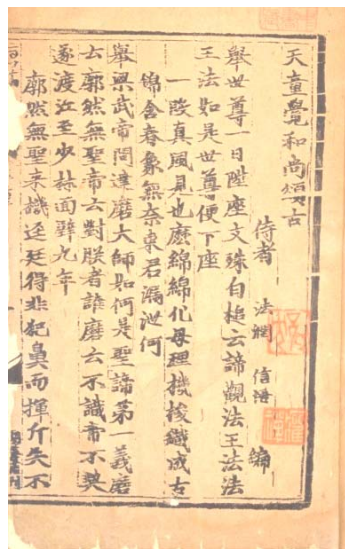 天童覺和尚頌古
侍者 法潤 信悟 編
舉世尊一日陞座文殊白槌云諦觀法王法法
王法如是世尊便下座
一段真風見也麽綿綿化母理機梭織成古
錦含春象無奈東君漏泄何
舉梁武帝問達磨大師如何是聖諦第一義磨
云廓然無聖帝云對朕者誰磨云不識帝不契
遂渡江至少林面壁九年
廓然無聖來機逕廷得非犯鼻而揮斤失不